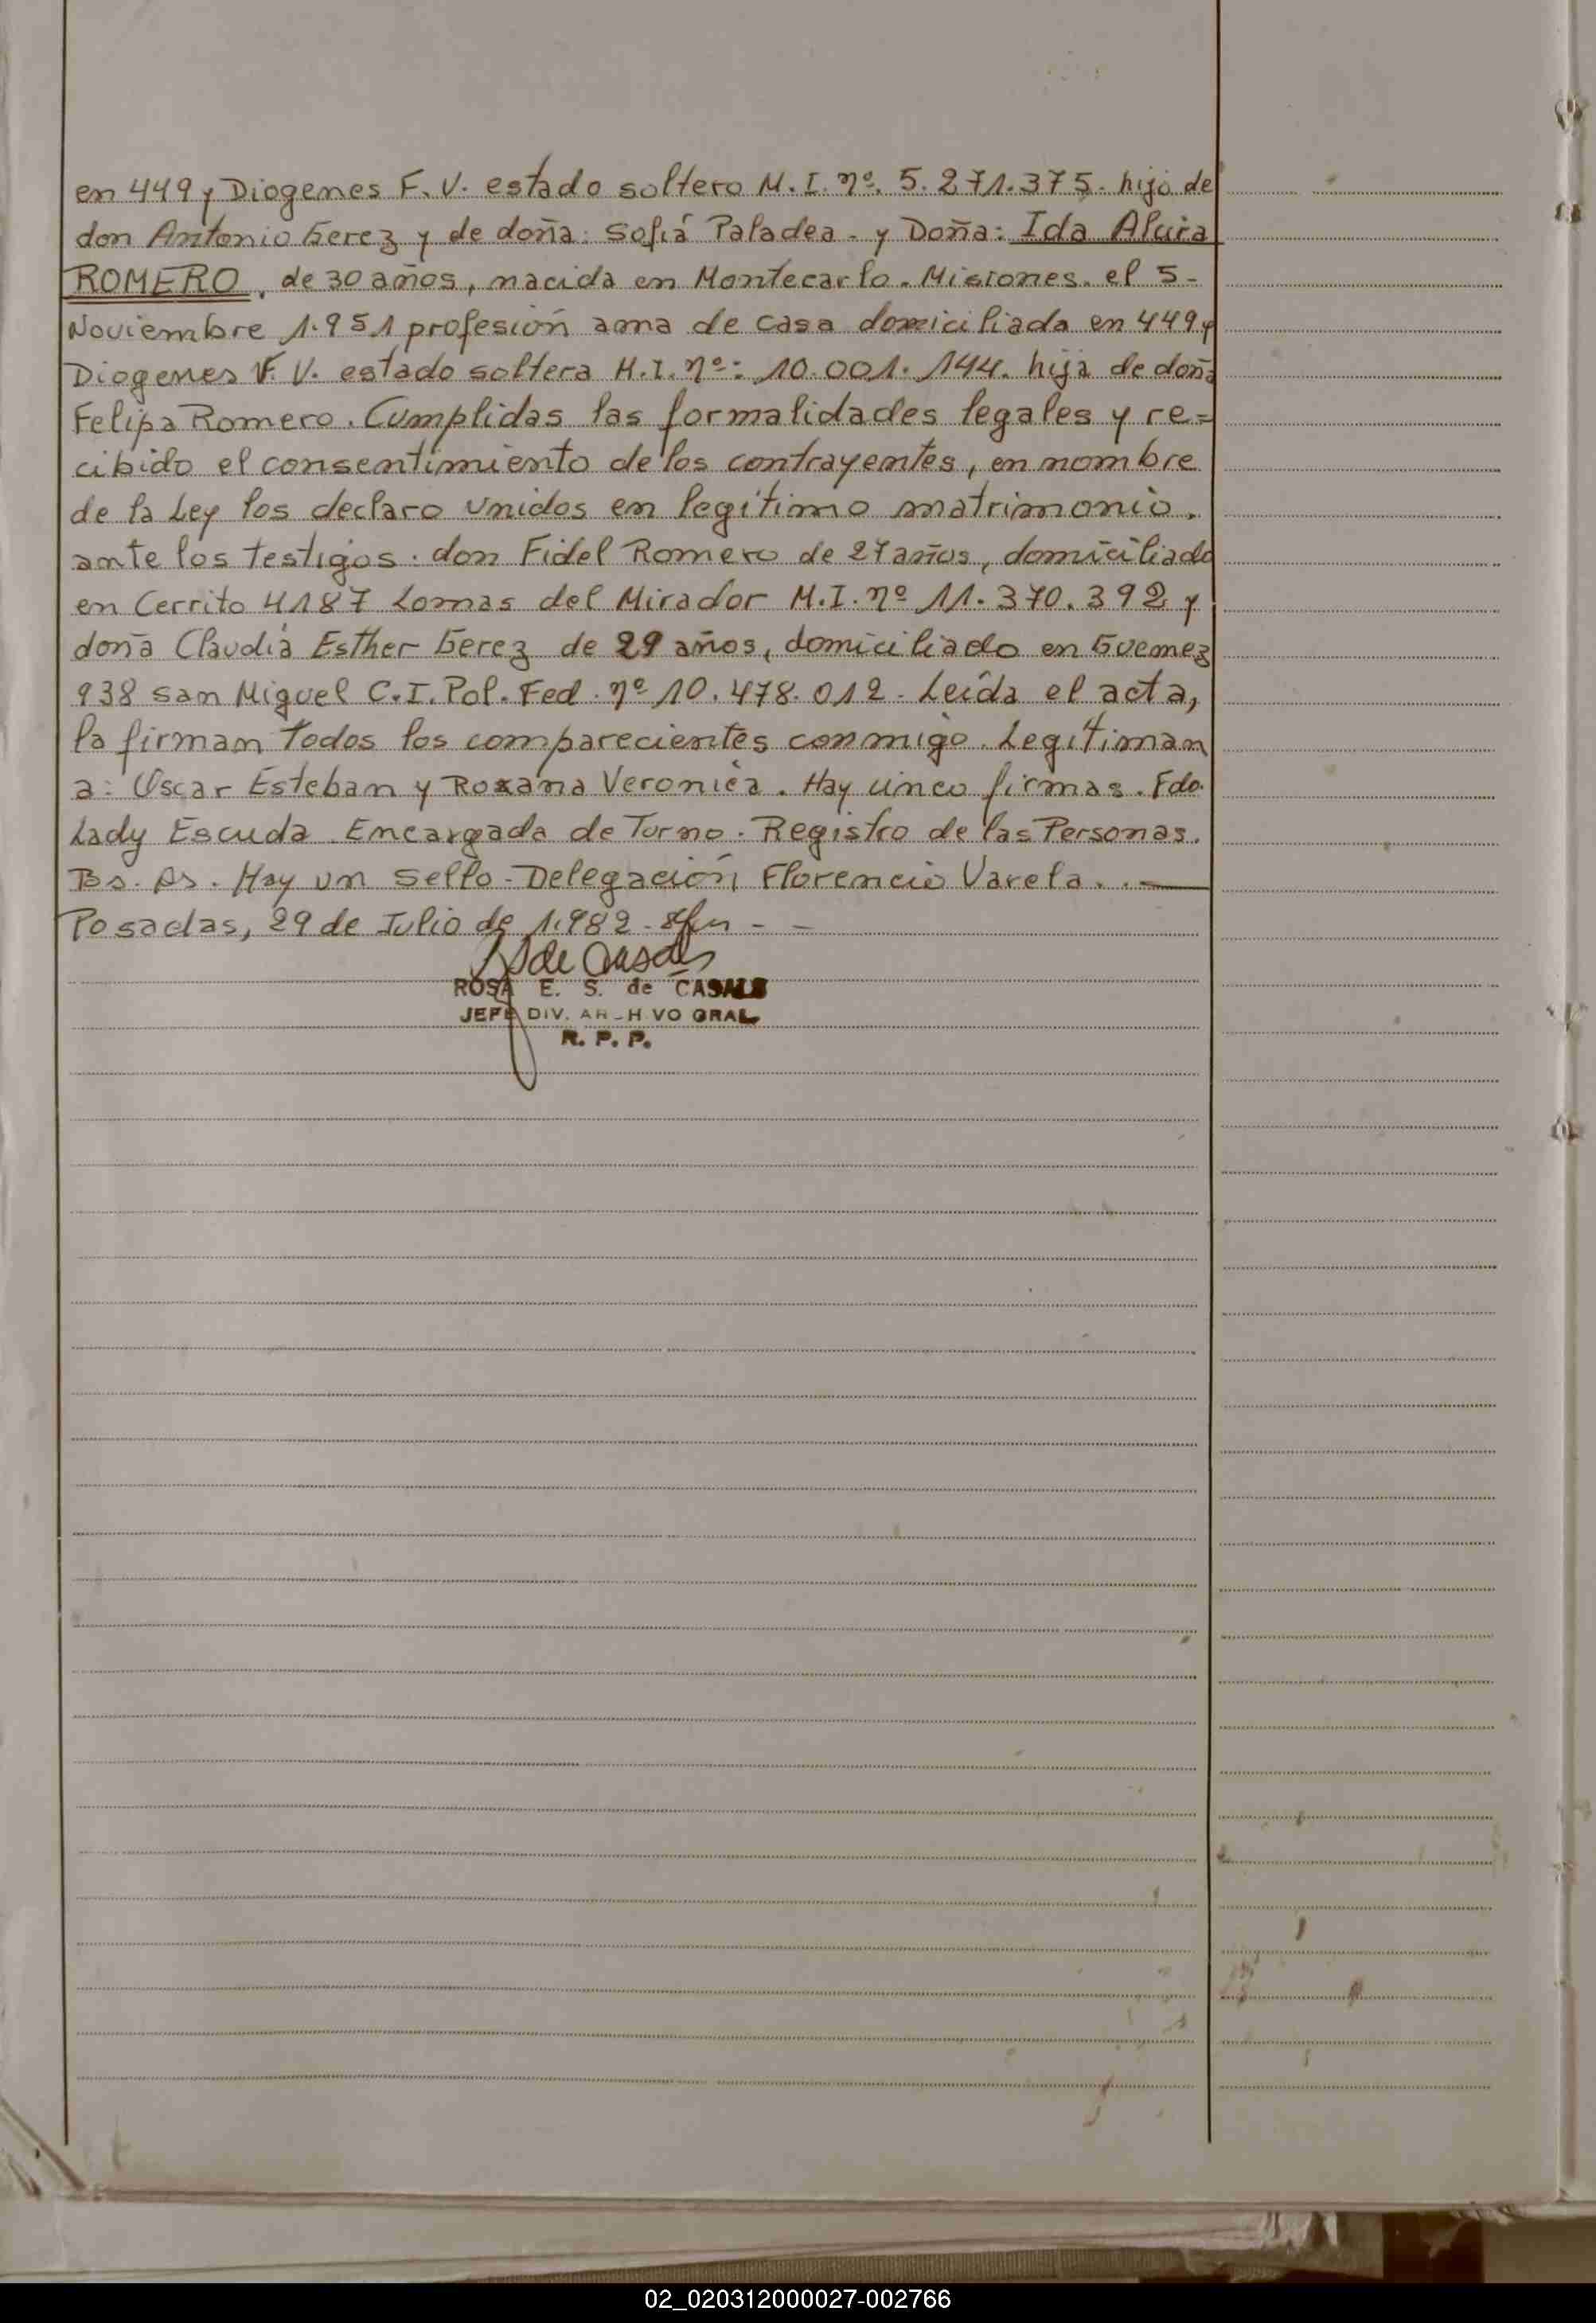 en 449 y Diogenes F. V. estado soltero M. I. nº. 5.271.375. hijo de
don Antonio Gerez y de doña: Sofiá Paladea - y Doña: Ida Alcira
ROMERO, de 30 años, nacida en Montecarlo. Misiones. el 5-
Noviembre 1.951 profesión ama de casa domiciliada en 449 y
Diogenes F. V. estado soltera M. I. nº: 10.001.144. hija de doña
Felipa Romero. Cumplidas las formalidades legales y re=
cibido el consentimiento de los contrayentes, en nombre
de la Ley los declaro unidos en legítimo matrimonio.
ante los testigos. don Fidel Romero de 27 años, domiciliado
en Cerrito 4187 Lomas del Mirador M.I. nº 11.370.392 y
doña Claudia Esther Gerez de 29 años, domiciliado en Guemez
938 san Miguel C.I. Pol. Fed. nº 10.478.012. Leída el acta,
la firman todos los comparecientes conmigo. Legitiman
a: Oscar Esteban y Roxana Veronica. Hay cinco firmas. Fdo.
Lady Escuda Encargada de Turno. Registro de las Personas.
Bs. As. Hay un sello - Delegación Florencio Varela. . —
Posadas, 29 de Julio de 1.982 - - -
de Casals
ROSA E. S. de CASALS
JEFE DIV. ARCHIVO GRAL
R. P. P.
02_020312000027-002766